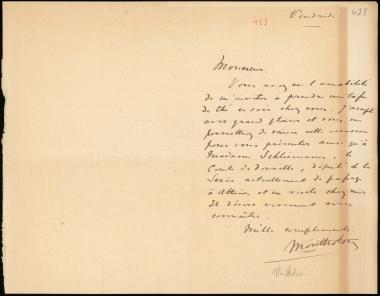 Vendredi
623
413
Monsieur,
Vous avez eu l'amabilité
de m'inviter à prendre une tasse
de thé ce soir chez vous. J'accepte
avec grand plaisir et vous me
permettrez de saisir cette occasion
pour vous présenter ainsi qu'à
Madame Schliemann, le
Comte de Douville, député de la
Seine actuellement de passage
à Athènes et en visite chez moi.
Il désire vivement vous
connaître.
Mille compliments
Montholon